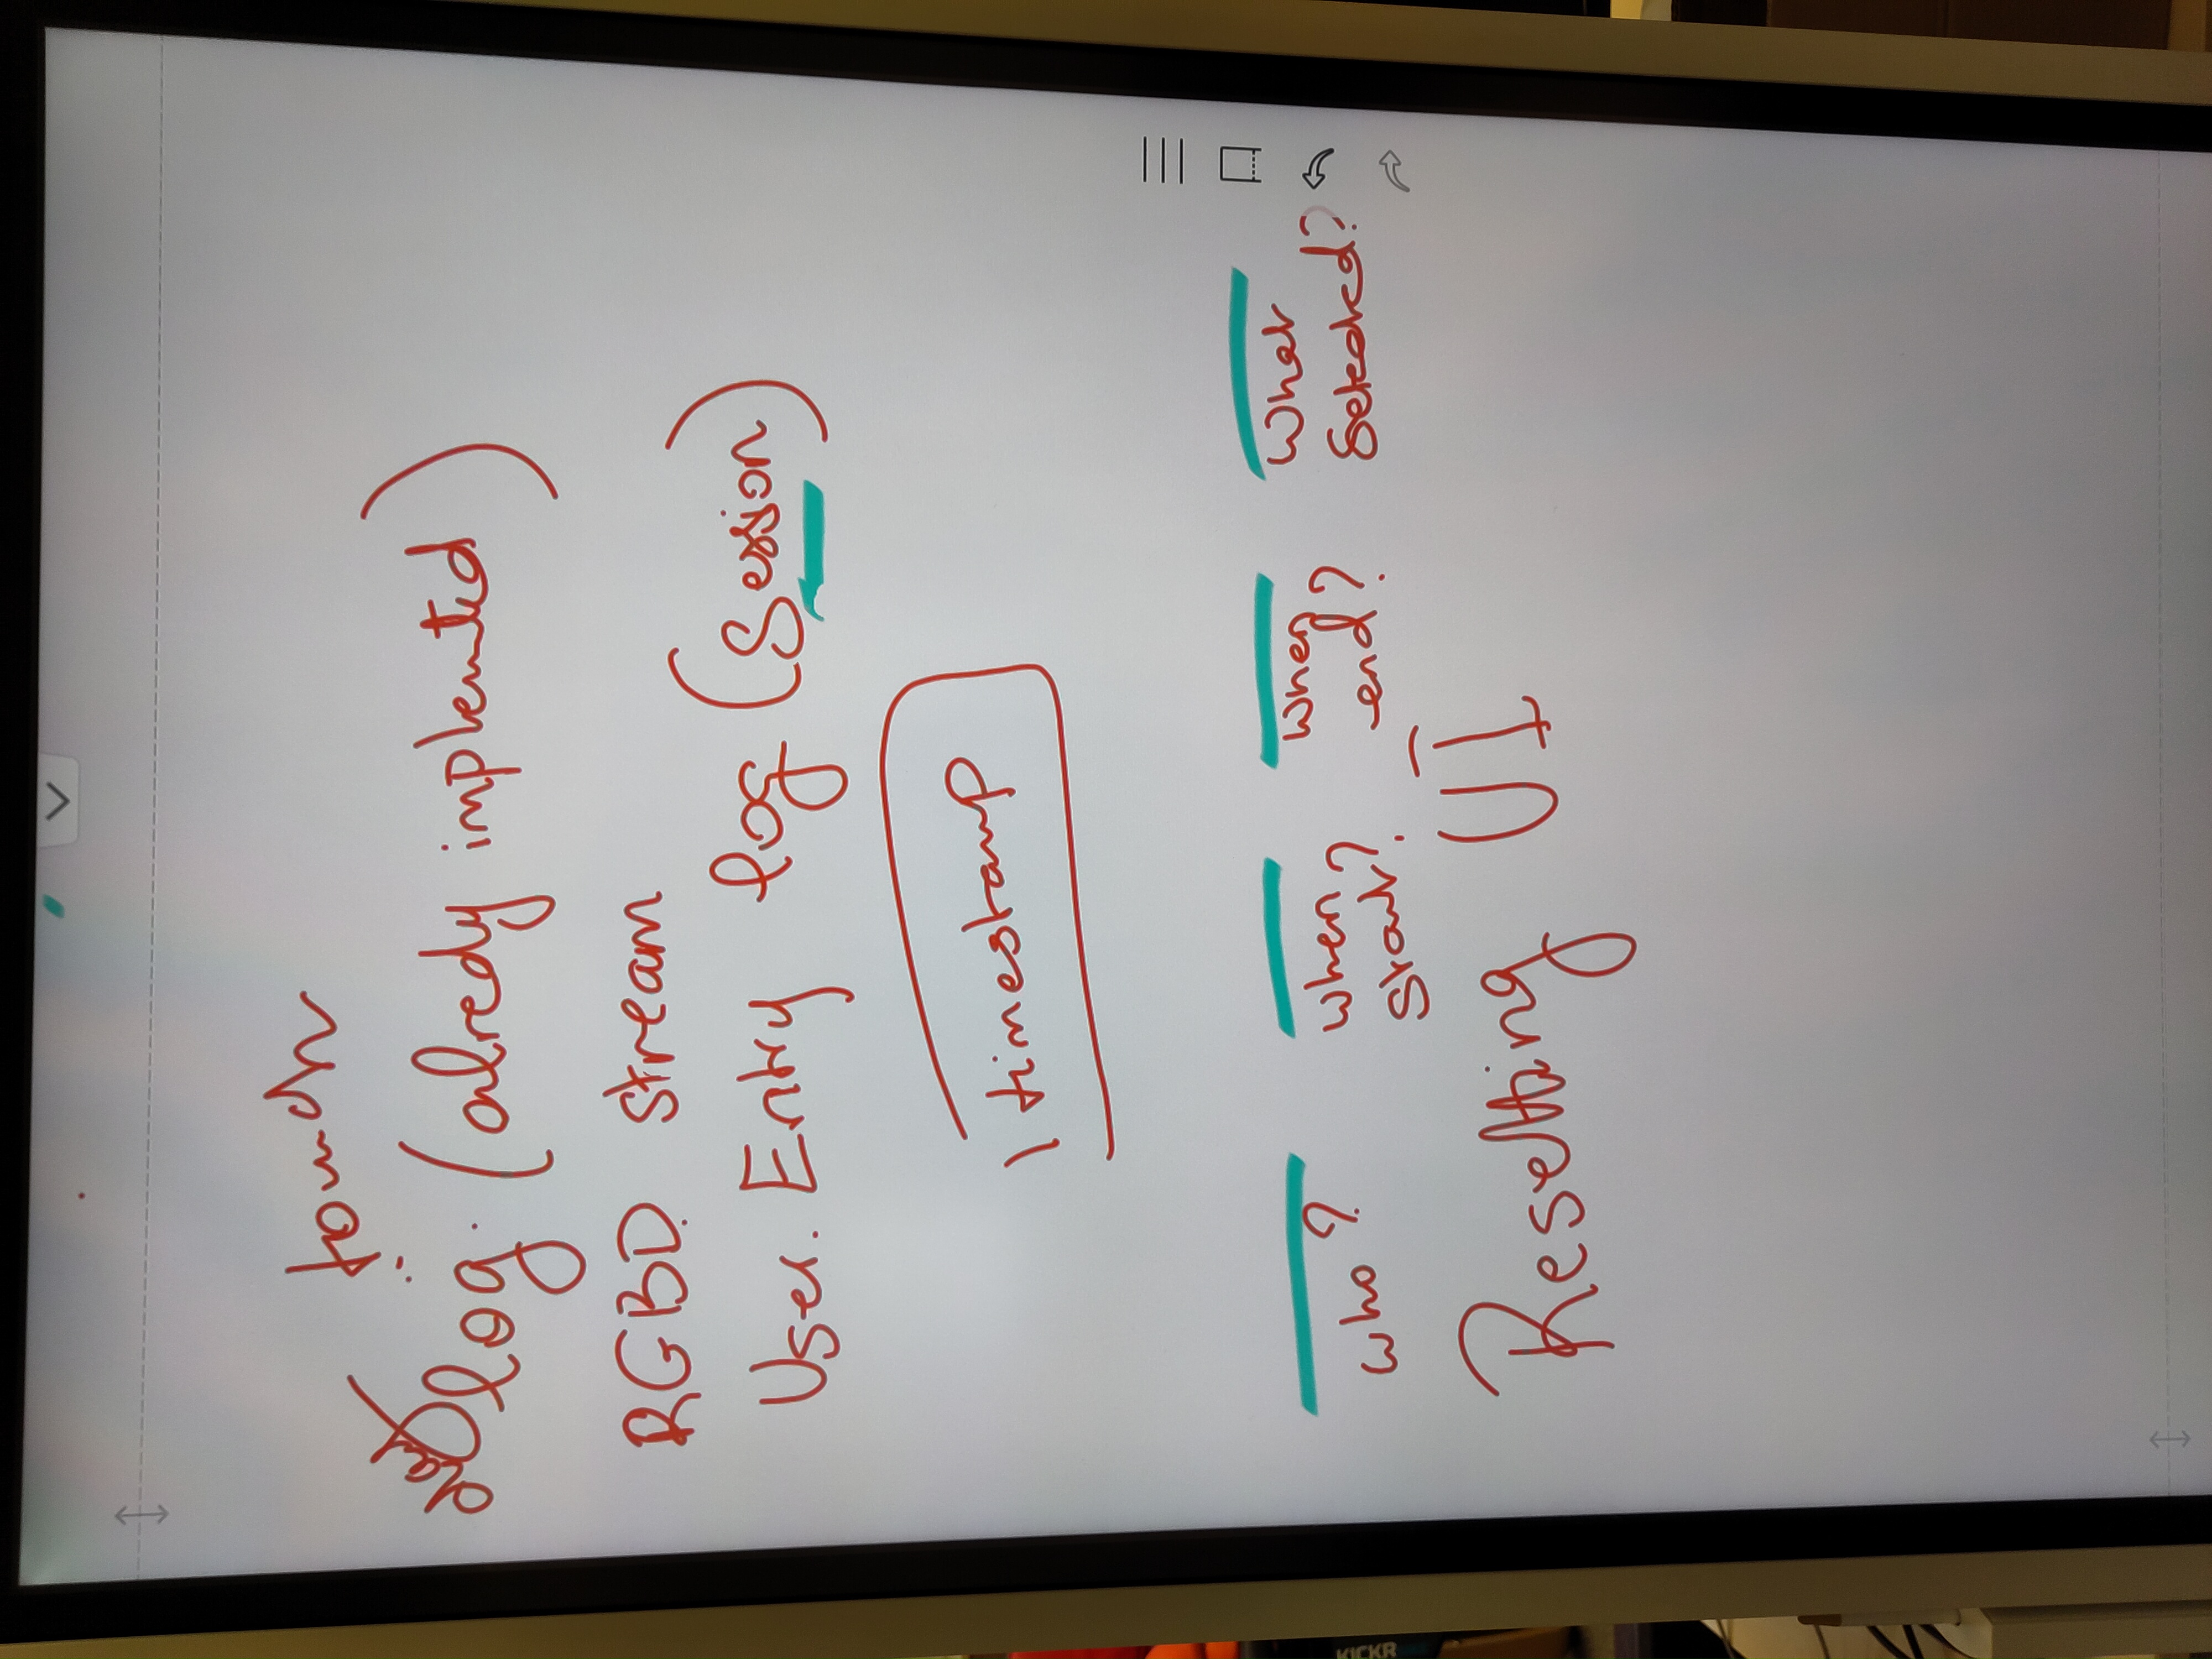 touch
day log. (alredy implemented)
RGBD stream
User. Entry log (Session)
1 timestamp
who?
when start?
when end?
What Selected?
Resetting UI
KICKR